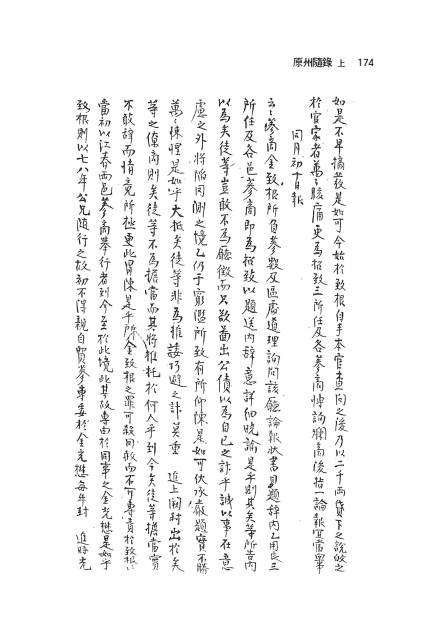 原州隨錄 上 174
如是不早摘發是如可今始於致根自手本官查問之後乃以二千兩貸下之說發之
於官家者萬萬駭痛更爲枚致三所任及各蔘商博詢爛商後指一論報宜當事
同月初十日報
云云蔘商金致根所負蔘數及區處道理詢問該廳論報狀書目題辭內乙用良三
所任及各邑蔘商卽爲枚致以題送內辭意詳細曉諭是乎則其矣等所告內
以爲矣徒等豈敢不爲聽 而只欲 出公債以爲自己之計乎誠以事在意
慮之外將陷罔測之境乙仍于 濫所致有所仰陳是如可伏承嚴題實不勝
萬萬悚惶是如乎大抵矣徒等非爲推諉巧避之計莫重 進上 封出於矣
等之 商則矣徒等不爲擔當而其將推托於何人乎到今矣徒等擔當實
不敢辭而情 所極更此冒陳是乎所金致根之罪可 而不可專責於致根
當初以江春兩邑蔘商擧行者到今至於此境此其故專由於同事之金光懋是如乎
致根則以七八年公兄隨行之故初不得親自貿蔘專委於金光懋每年封 進時光